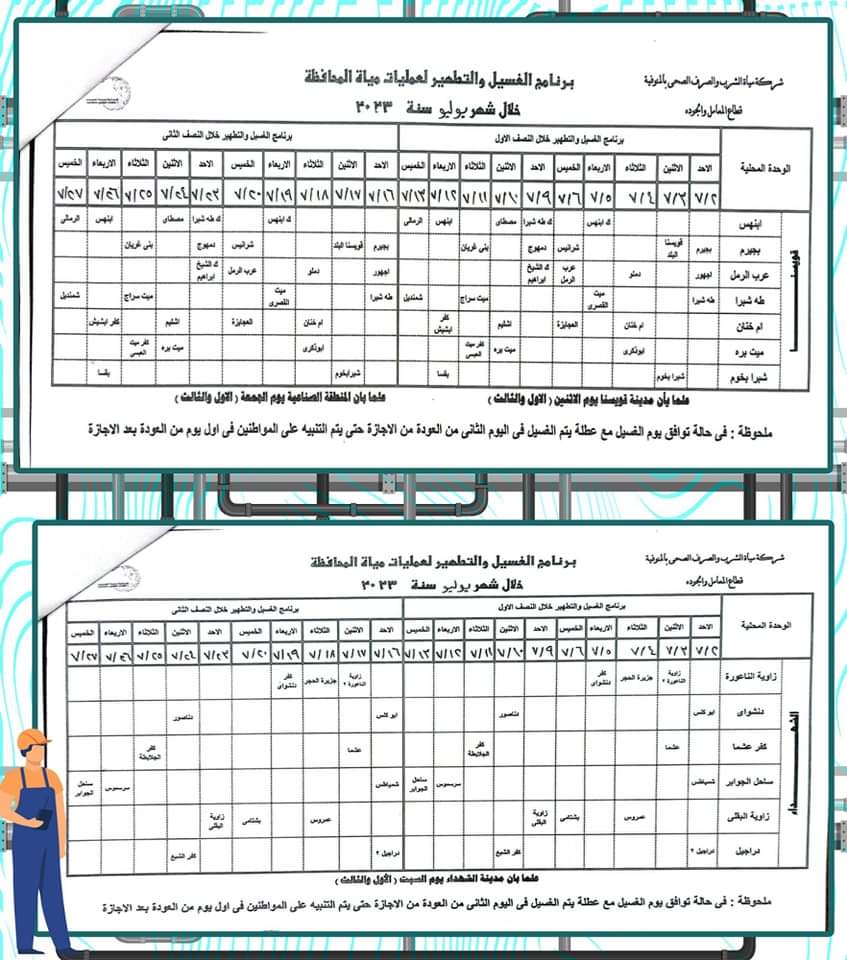 شركة مياة الشرب والصرف الصحى بالمنوفية
برنامج الغسيل والتطهير لعمليات مياة المحافظة
قطاع المعامل والجوده
خلال شهر يوليو سنة ٢٠٢٣
الوحدة المحلية برنامج الغسيل والتطهير خلال النصف الاول برنامج الغسيل والتطهير خلال النصف الثانى
الاحد الاثنين الثلاثاء الاربعاء الخميس الاحد الاثنين الثلاثاء الاربعاء الخميس الاحد الاثنين الثلاثاء الاربعاء الخميس الاحد الاثنين الثلاثاء الاربعاء الخميس
٧/٢ ٧/٣ ٧/٤ ٧/٥ ٧/٦ ٧/٩ ٧/١٠ ٧/١١ ٧/١٢ ٧/١٣ ٧/١٦ ٧/١٧ ٧/١٨ ٧/١٩ ٧/٢٠ ٧/٢٣ ٧/٢٤ ٧/٢٥ ٧/٢٦ ٧/٢٧
قويسنا
ابنهس ك ابنهس ك طه شبرا مصطاى ابنهس الرمالى ك ابنهس ك طه شبرا مصطاى ابنهس الرمالى
بجيرم بجيرم قويسنا البلد شرانيس دمهوج بنى غريان بجيرم قويسنا البلد شرانيس دمهوج بنى غريان
عرب الرمل اجهور دملو عرب الرمل ك الشيخ ابراهيم اجهور دملو عرب الرمل ك الشيخ ابراهيم
طه شبرا طه شبرا ميت القصرى ميت سراج شمنديل طه شبرا ميت القصرى ميت سراج شمنديل
ام خنان ام خنان العجايزة اشليم كفر ابشيش ام خنان العجايزة اشليم كفر ابشيش
ميت بره ابوذكرى ميت بره كفر ميت العبسى ابوذكرى ميت بره كفر ميت العبسى
شبرا بخوم شبرا بخوم بقسا شبرابخوم بقسا
علما بأن مدينة قويسنا يوم الاثنين ( الاول والثالث ) علما بان المنطقة الصناعية يوم الجمعة ( الاول والثالث )
ملحوظة : فى حالة توافق يوم الغسيل مع عطلة يتم الغسيل فى اليوم الثانى من العودة من الاجازة حتى يتم التنبيه على المواطنين فى اول يوم من العودة بعد الاجازة
شركة مياة الشرب والصرف الصحى بالمنوفية
برنامج الغسيل والتطهير لعمليات مياة المحافظة
قطاع المعامل والجوده
خلال شهر يوليو سنة ٢٠٢٣
الوحدة المحلية برنامج الغسيل والتطهير خلال النصف الاول برنامج الغسيل والتطهير خلال النصف الثانى
الاحد الاثنين الثلاثاء الاربعاء الخميس الاحد الاثنين الثلاثاء الاربعاء الخميس الاحد الاثنين الثلاثاء الاربعاء الخميس الاحد الاثنين الثلاثاء الاربعاء الخميس
٧/٢ ٧/٣ ٧/٤ ٧/٥ ٧/٦ ٧/٩ ٧/١٠ ٧/١١ ٧/١٢ ٧/١٣ ٧/١٦ ٧/١٧ ٧/١٨ ٧/١٩ ٧/٢٠ ٧/٢٣ ٧/٢٤ ٧/٢٥ ٧/٢٦ ٧/٢٧
الشهداء
زاوية الناعورة زاوية الناعورة ٢ جزيرة الحجر كفر دنشواى زاوية الناعورة ٢ جزيرة الحجر كفر دنشواى
دنشواى ابو كلس دناصور ابو كلس دناصور
كفر عشما عشما كفر الجلابطة عشما كفر الجلابطة
ساحل الجوابر شمياطس سرسموس ساحل الجوابر شمياطس سرسموس ساحل الجوابر
زاوية البقلى عمروس بشتامى زاوية البقلى عمروس بشتامى زاوية البقلى
دراجيل دراجيل ٢ كفر الشبع دراجيل ٢ كفر الشبع
علما بان مدينة الشهداء يوم السبت ( الأول والثالث )
ملحوظة : فى حالة توافق يوم الغسيل مع عطلة يتم الغسيل فى اليوم الثانى من العودة من الاجازة حتى يتم التنبيه على المواطنين فى اول يوم من العودة بعد الاجازة